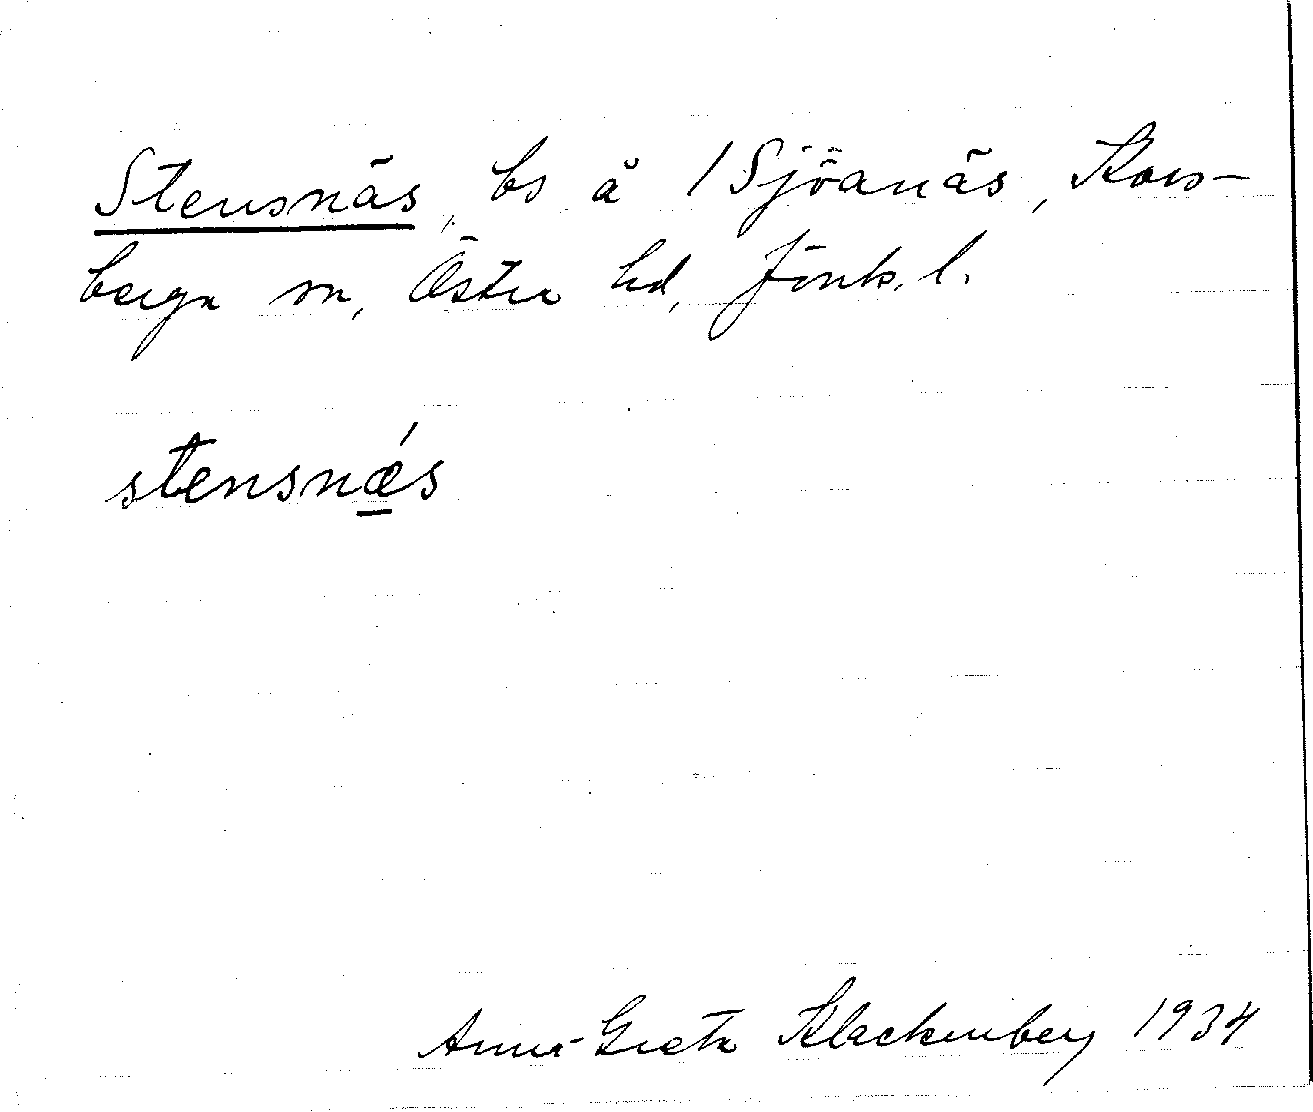 Stensnäs, bs å 1 Sjöanäs, Kors-
berga sn, Östra hd, Jönk. l.
stensnǽs
Anna-Greta Klackenberg 1934